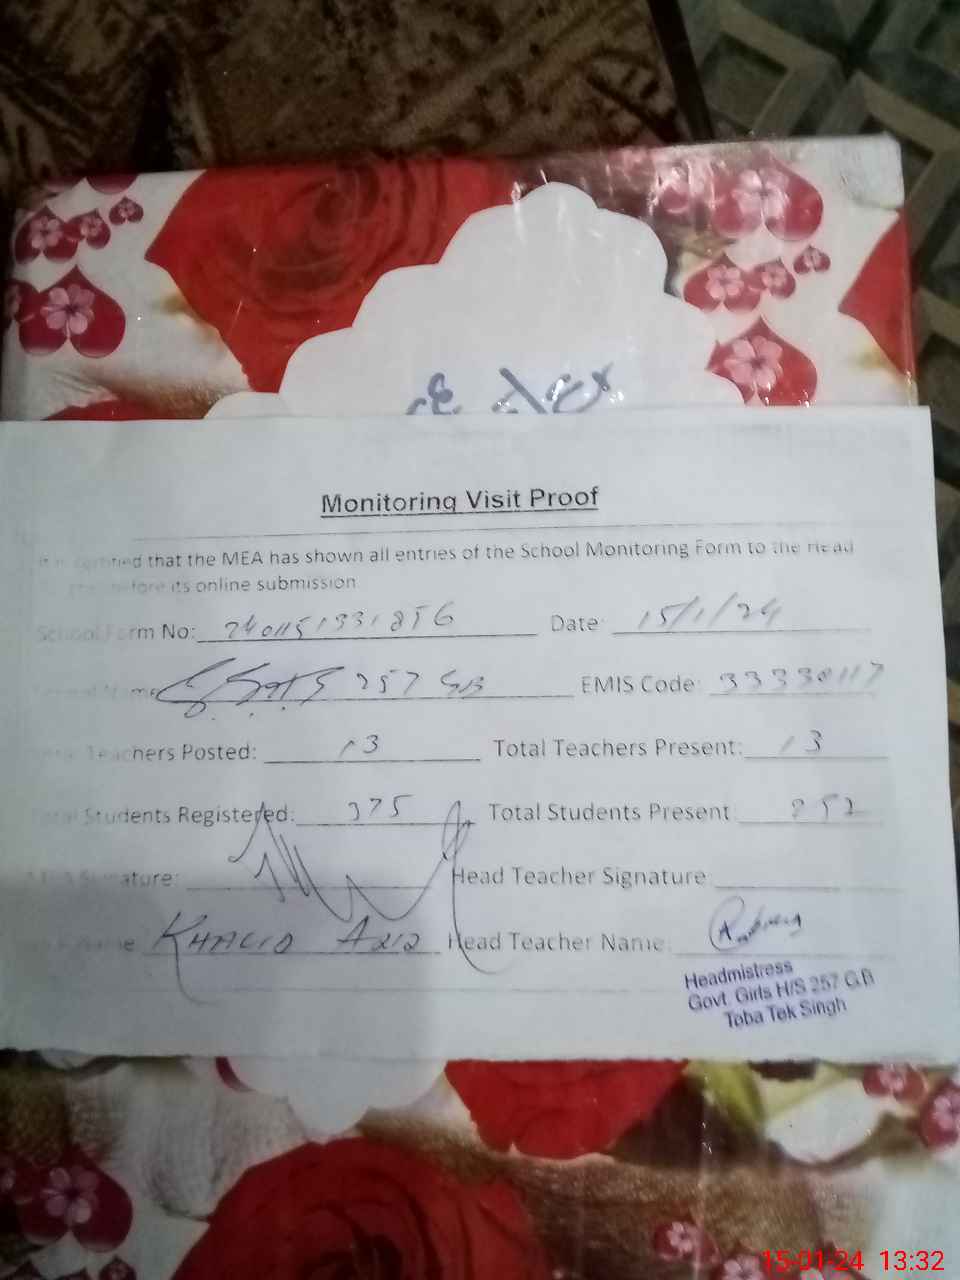 Monitoring Visit Proof
It is certified that the MEA has shown all entries of the School Monitoring Form to the Head
before its online submission
School Form No: Date: 15/1/24
257 GB EMIS Code: 33330117
Teachers Posted: 13 Total Teachers Present: 13
Total Students Registered: 375 Total Students Present:
MEA Signature: Head Teacher Signature
Name KHALID AZIZ Head Teacher Name:
Headmistress
Govt. Girls H/S 257 G.B
Toba Tek Singh
15-01-24 13:32